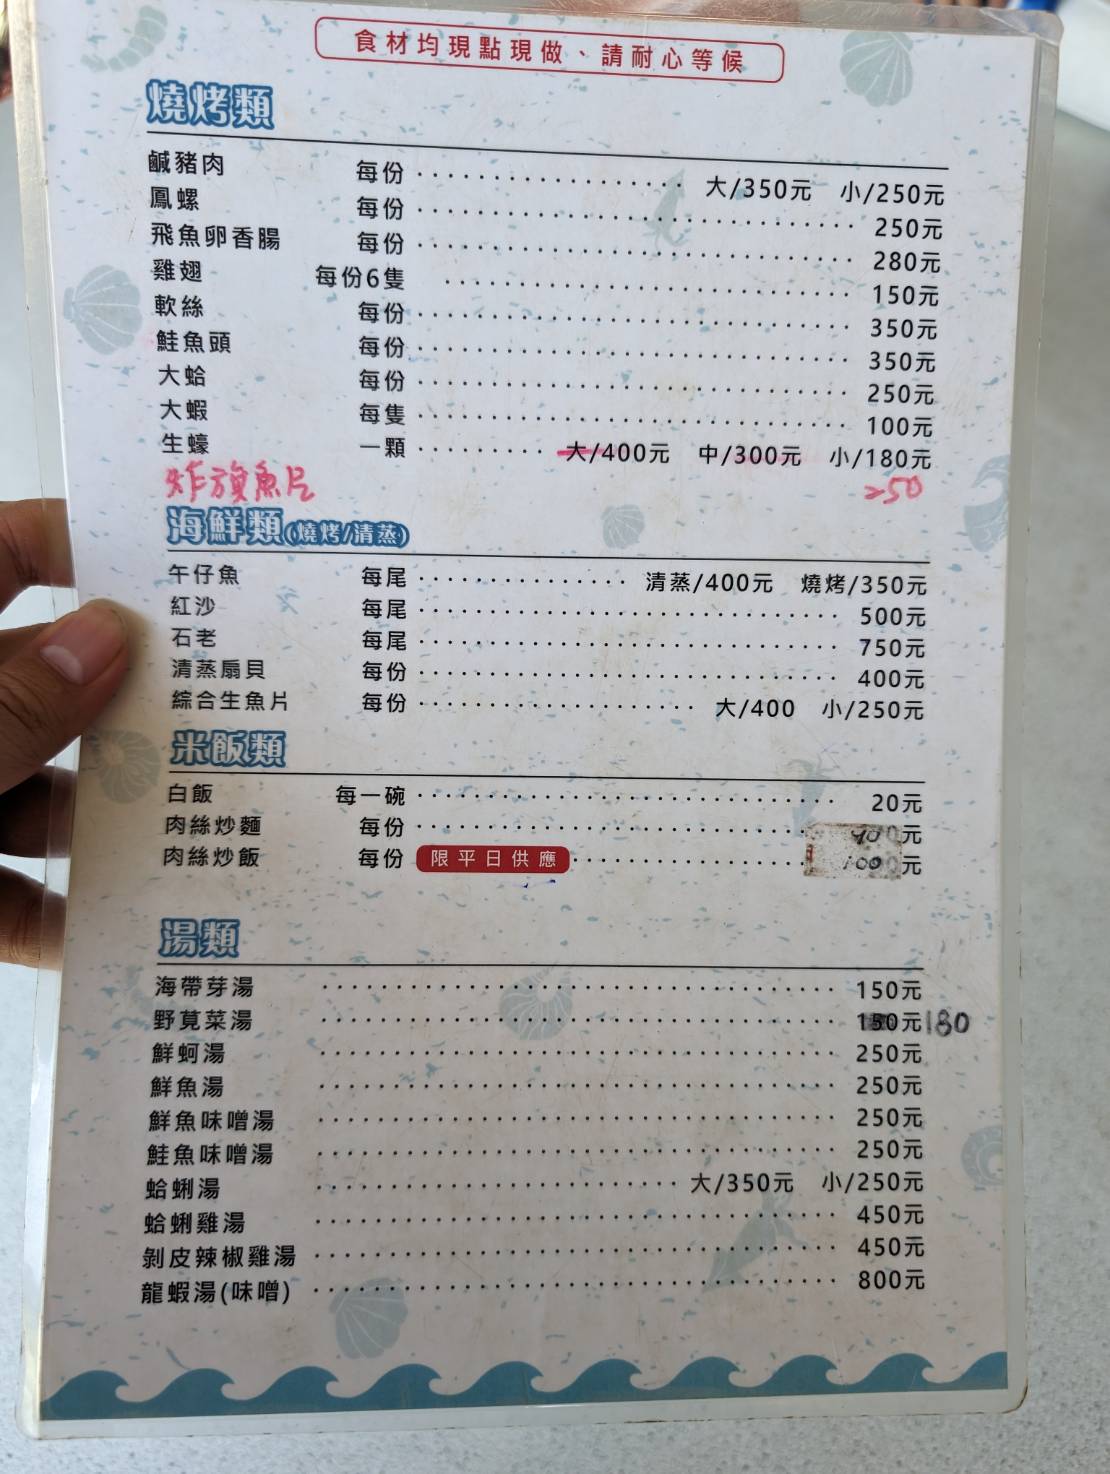 食材均現點現做、請耐心等候
燒烤類
鹹豬肉 每份 大/350元 小/250元
鳳螺 每份 250元
飛魚卵香腸 每份 280元
雞翅 每份6隻 150元
軟絲 每份 350元
鮭魚頭 每份 350元
大蛤 每份 250元
大蝦 每隻 100元
生蠔 一顆 大/400元 中/300元 小/180元
炸旗魚片 250
海鮮類(燒烤/清蒸)
午仔魚 每尾 清蒸/400元 燒烤/350元
紅沙 每尾 500元
石老 每尾 750元
清蒸扇貝 每份 400元
綜合生魚片 每份 大/400 小/250元
米飯類
白飯 每一碗 20元
肉絲炒麵 每份 90元
肉絲炒飯 每份 限平日供應 100元
湯類
海帶芽湯 150元
野莧菜湯 元180
鮮蚵湯 250元
鮮魚湯 250元
鮮魚味噌湯 250元
鮭魚味噌湯 250元
蛤蜊湯 大/350元 小/250元
蛤蜊雞湯 450元
剝皮辣椒雞湯 450元
龍蝦湯(味噌) 800元